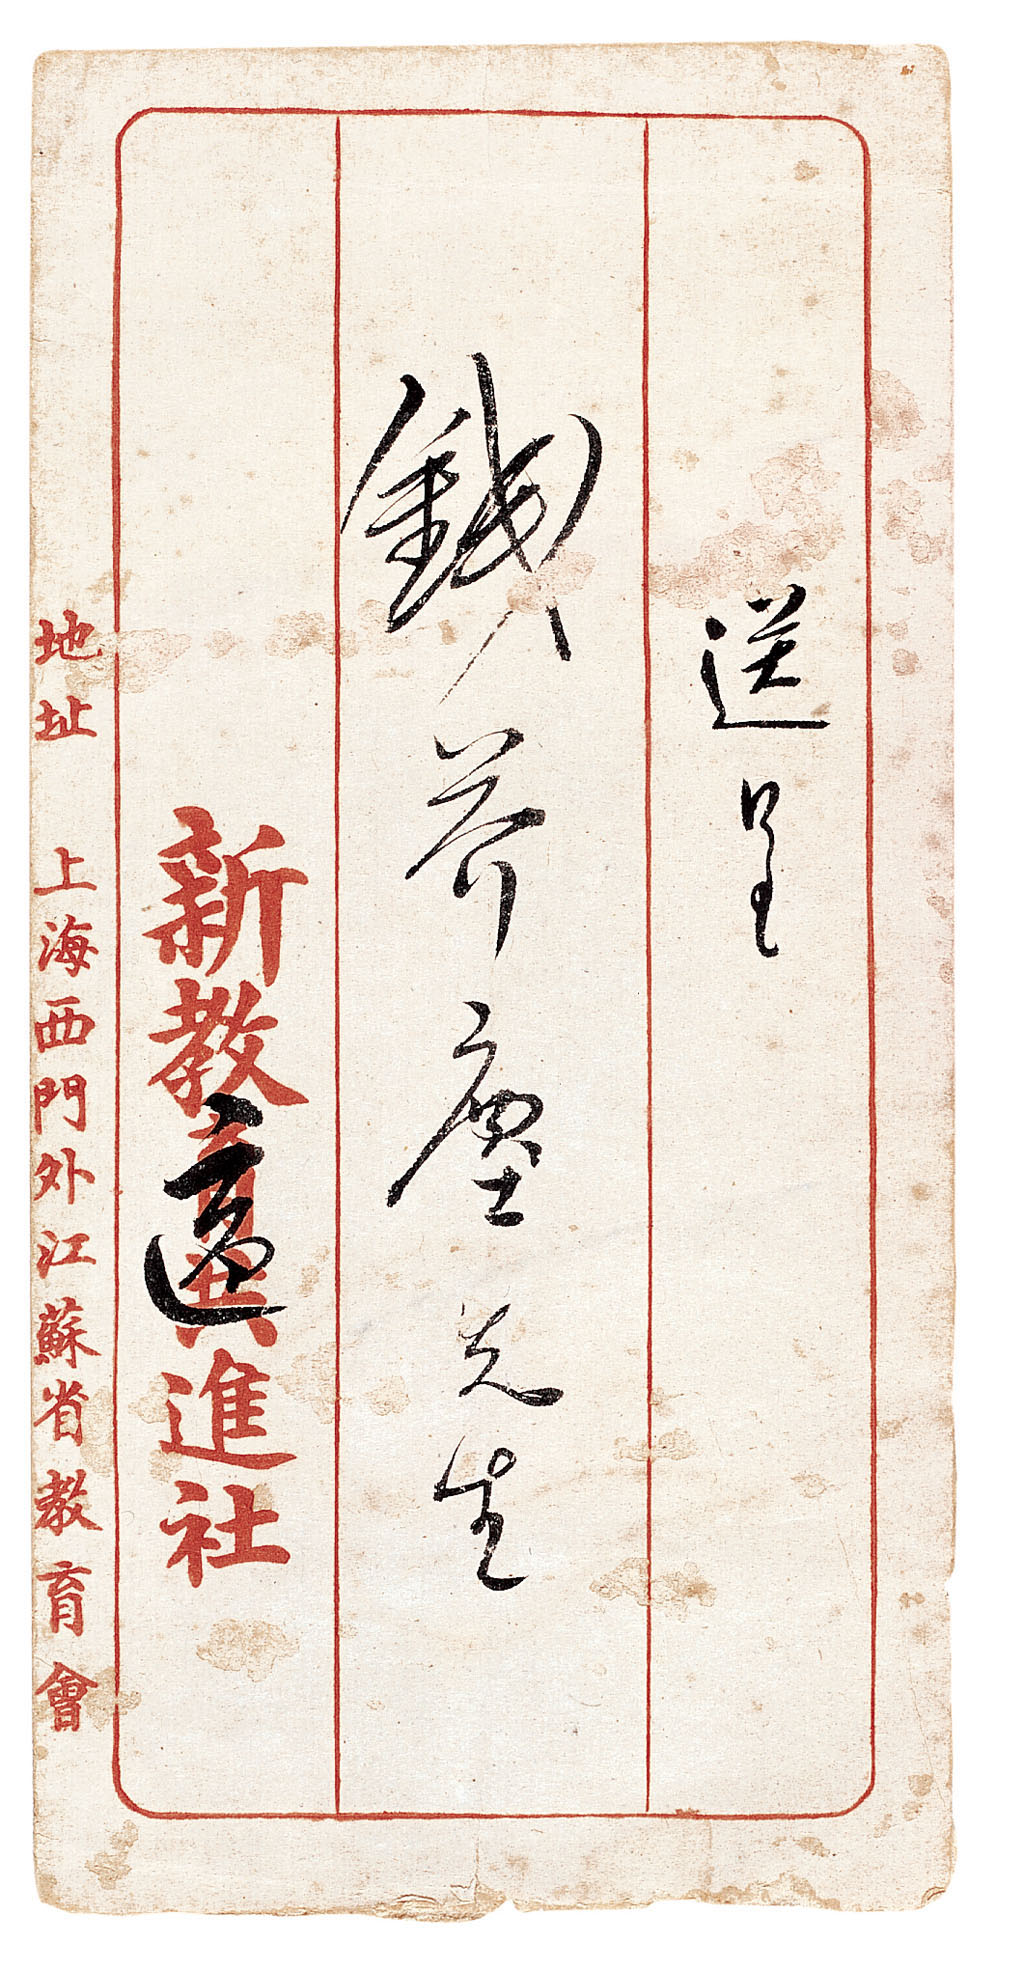 送呈
錢芥塵先生
新教育共進社
適
地址 上海西門外江蘇省教育會